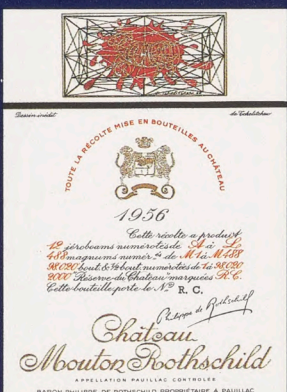 Dessin inédit
de Tchelitchew
TOUTE LA RÉCOLTE MISE EN BOUTEILLES AU CHÂTEAU
1956
Cette récolte a produit
12 jéroboams numérotés de A à L
488 magnums numér.ᵗˢ de M1 à M488
98.020 bout. & ½ bout. numérotées de 1 à 98.020
2000 "Réserve du Château" marquées R.C.
Cette bouteille porte le Nº R. C.
Philippe de Rothschild
Château
Mouton Rothschild
APPELLATION PAUILLAC CONTROLÉE
BARON PHILIPPE DE ROTHSCHILD PROPRIÉTAIRE A PAUILLAC